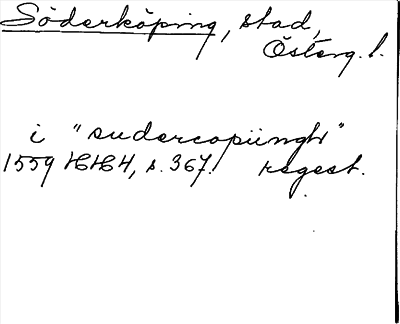 Söderköping, stad,
Österg. l.
i "sudercopiingh"
1559 HH4, s. 367. regest.